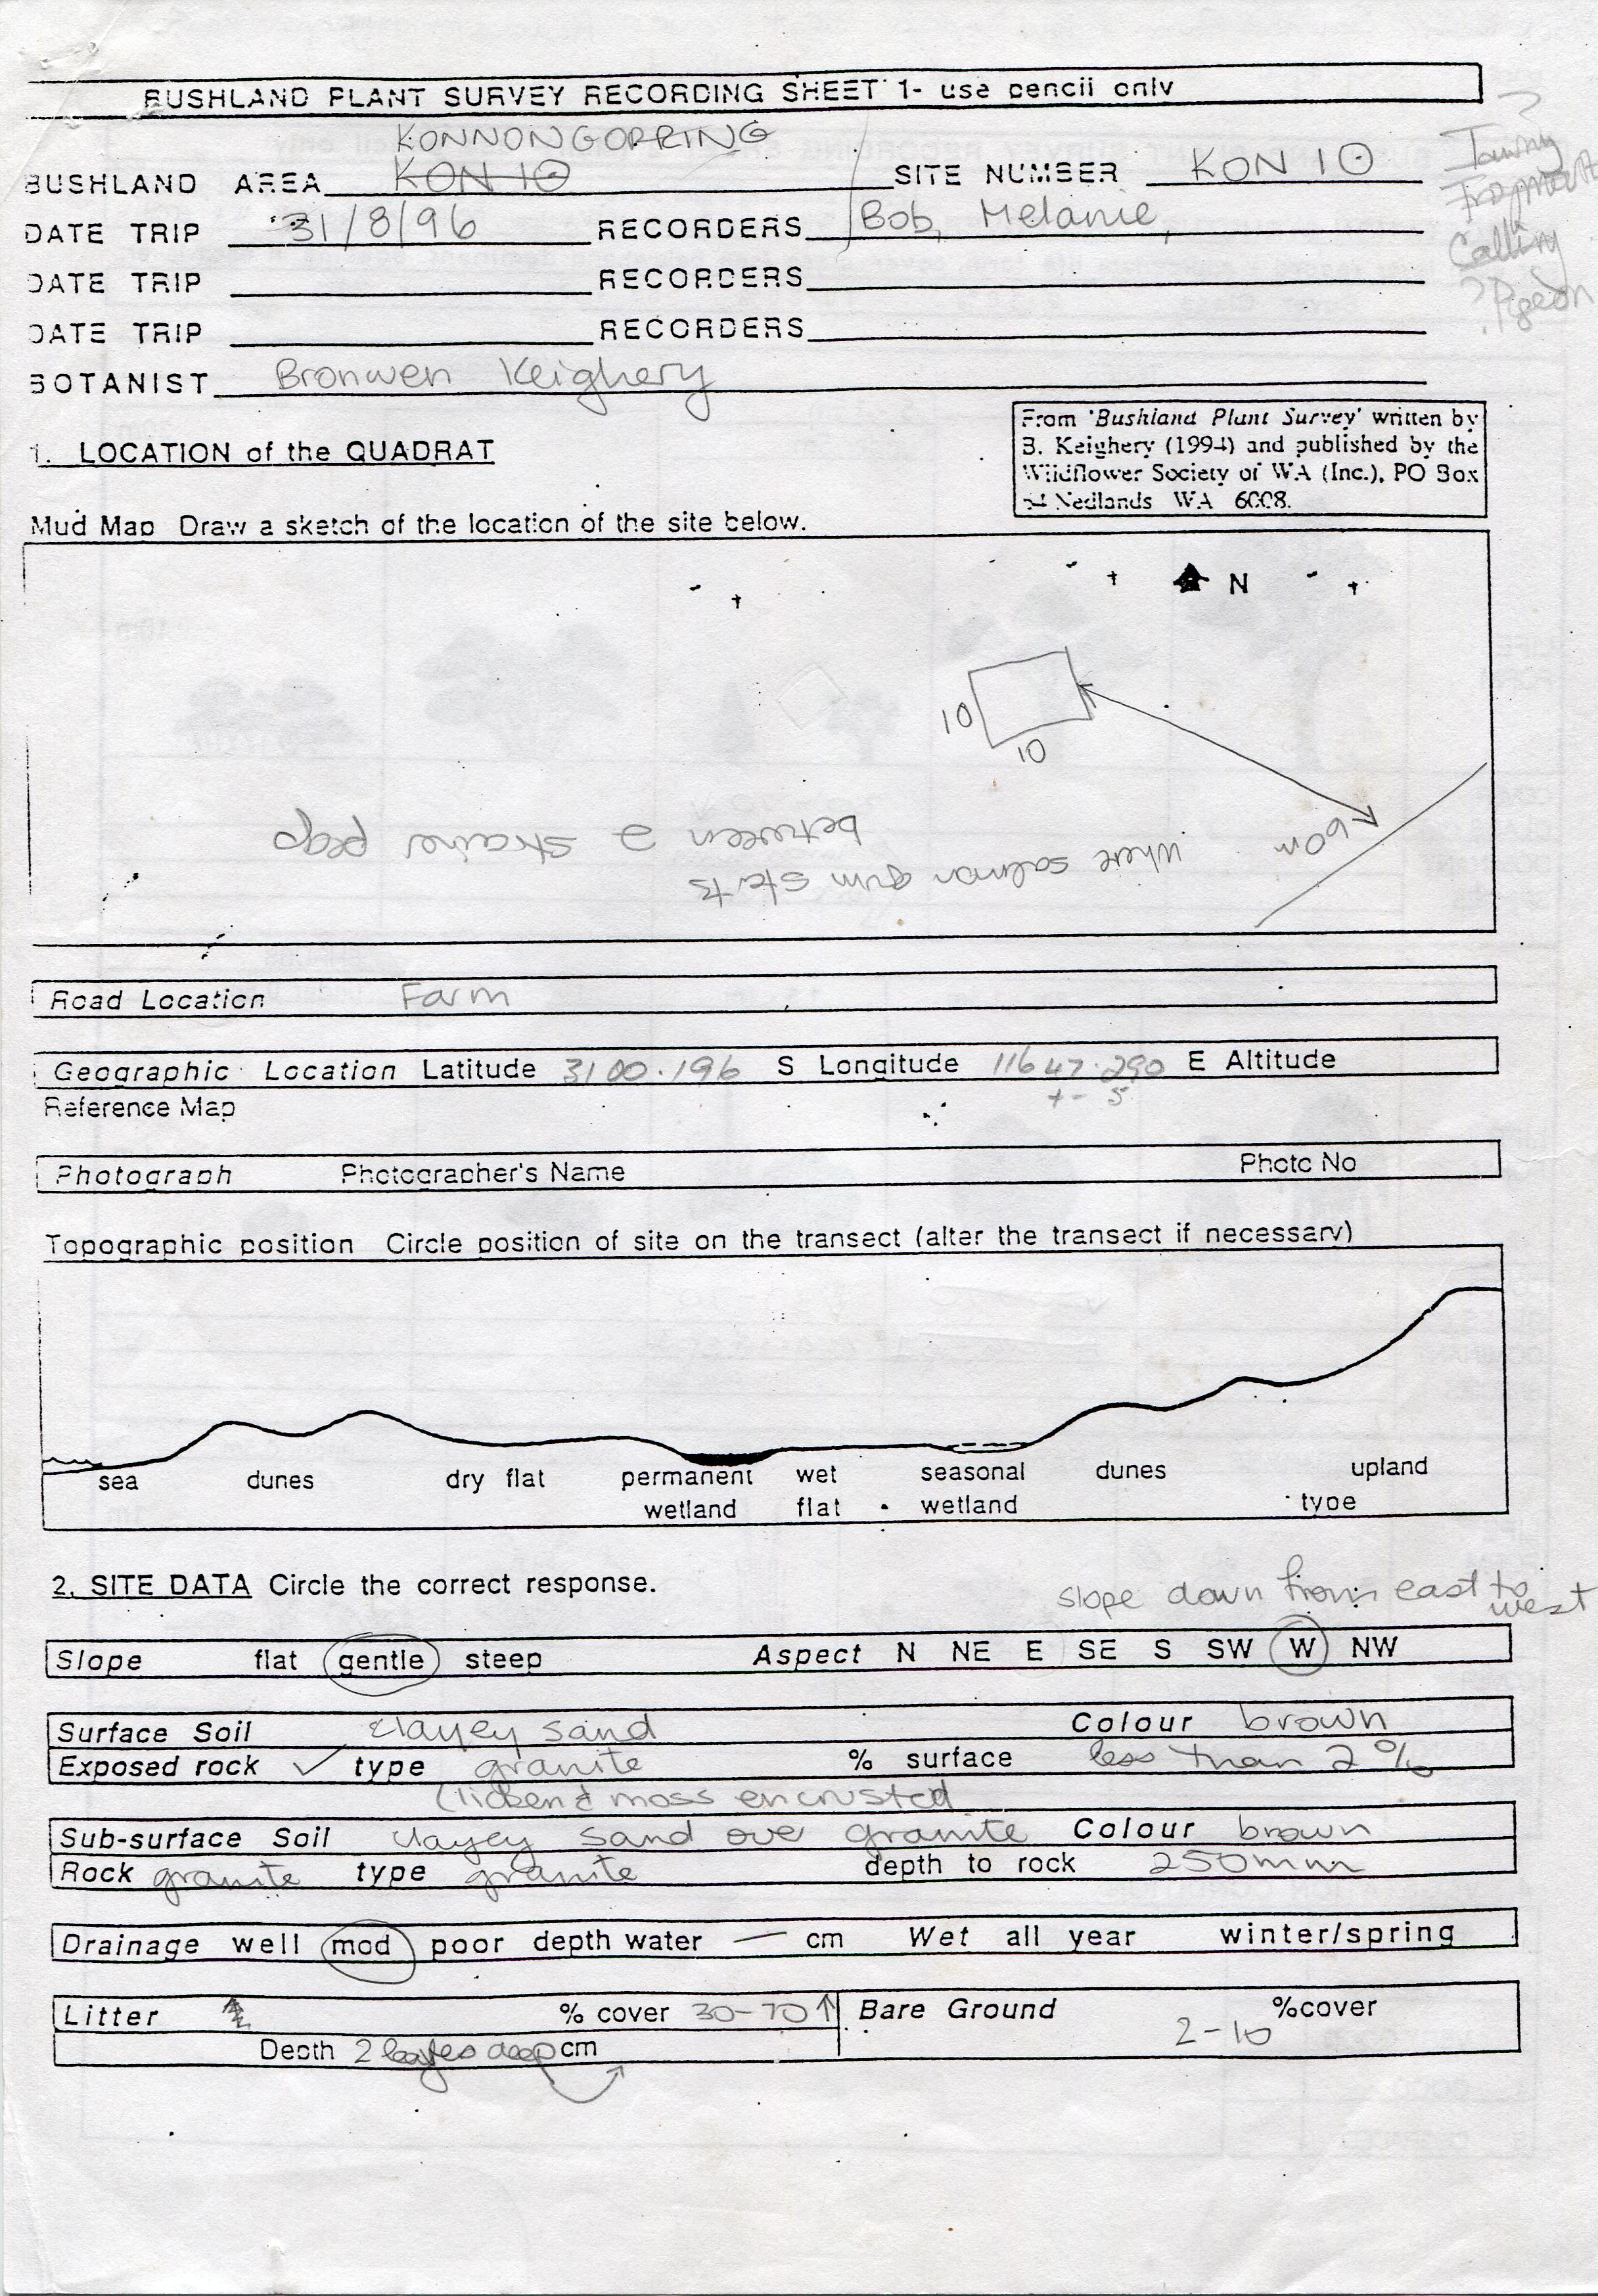 BUSHLAND PLANT SURVEY RECORDING SHEET 1- use pencil only
KONNONGORRING
BUSHLAND AREA KON 10 SITE NUMBER KON 10
DATE TRIP 31/8/96 RECORDERS Bob, Melanie,
DATE TRIP RECORDERS
DATE TRIP RECORDERS
BOTANIST Bronwen Keighery
?
Tawny
Frogmouth
Calling
? Pigeon
From 'Bushland Plant Survey' written by
B. Keighery (1994) and published by the
Wildflower Society of WA (Inc.), PO Box
64 Nedlands WA 6008.
1. LOCATION of the QUADRAT
Mud Map Draw a sketch of the location of the site below.
N
10
10
60m
where salmon gum starts
between 2 strainer
Road Location Farm
Geographic Location Latitude 31 00.196 S Longitude 116 47.290 E Altitude
+- 5
Reference Map
Photograph Photographer's Name Photo No
Topographic position Circle position of site on the transect (alter the transect if necessary)
sea dunes dry flat permanent wet seasonal dunes upland
wetland flat wetland type
2. SITE DATA Circle the correct response.
slope down from east to
west
Slope flat gentle steep Aspect N NE E SE S SW W NW
Surface Soil clayey sand Colour brown
Exposed rock ✓ type granite % surface less than 2%
(licken & moss encrusted
Sub-surface Soil clayey sand over granite Colour brown
Rock granite type granite depth to rock 250mm
Drainage well mod poor depth water — cm Wet all year winter/spring
Litter % cover 30-70 ↑ Bare Ground %cover
2-10
Depth 2 leafes deep cm